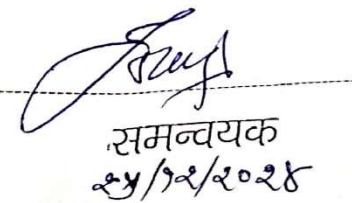 समन्वयक
२५/१२/२०२४